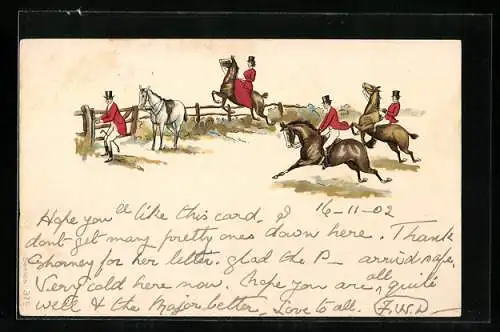 Hope you'll like this card, I 16-11-02
don't get many pretty ones down here. Thank
for her letter. glad the P— arrived safe.
Very cold here now. Hope you are, all quite
well & the Major better, Love to all. F.W.D—